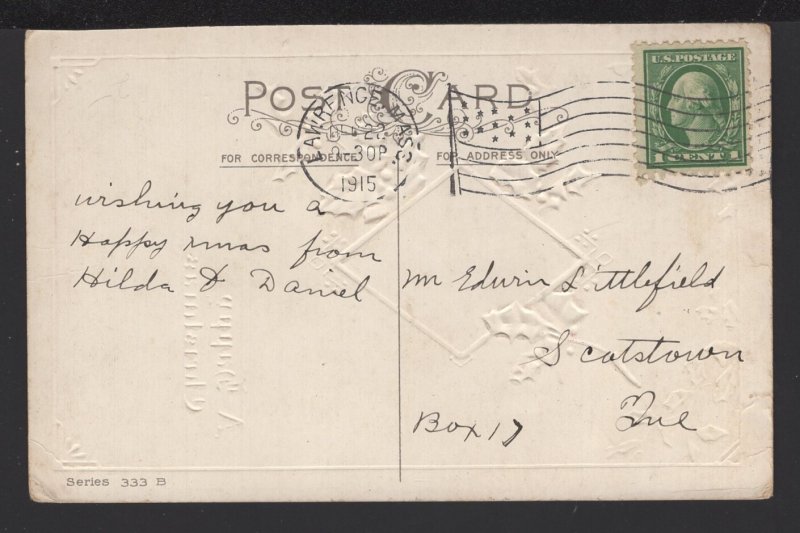 POST CARD
LAWRENCE MASS
30P
1915
U.S. POSTAGE
1 CENT 1
FOR CORRESPONDENCE
FOR ADDRESS ONLY
wishing you a
Happy xmas from
Hilda & Daniel
Mr Edwin Littlefield
Scotstown
Box 17
Que
Series 333 B